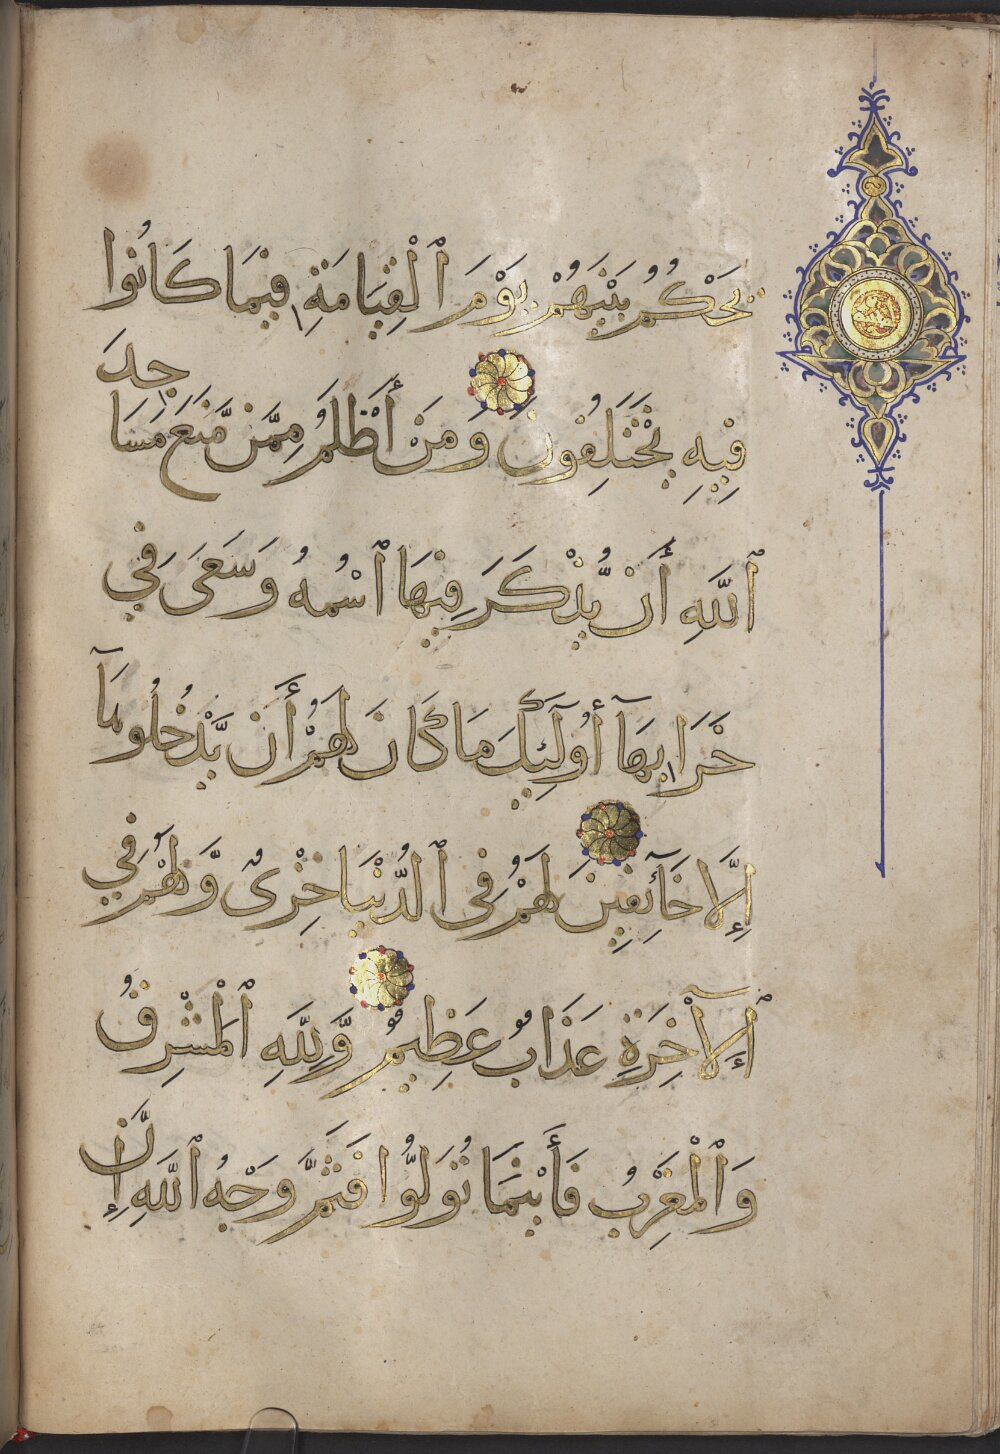 يَحْكُمُ بَيْنَهُمْ يَوْمَ ٱلْقِيَامَةِ فِيمَا كَانُوا
فِيهِ يَخْتَلِفُونَ وَمَنْ أَظْلَمُ مِمَّن مَّنَعَ مَسَاجِدَ
ٱللَّهِ أَن يُّذْكَرَ فِيهَا ٱسْمُهُ وَسَعَىَ فِي
خَرَابِهَآ أُوْلَٰٓئِكَ مَا كَانَ لَهُمْ أَن يَّدْخُلُوهَآ
إِلَّا خَآئِفِينَ لَهُمْ فِى ٱلدُّنْيَا خِزْىٌ وَّلَهُمْ فِي
ٱلْآخِرَةِ عَذَابٌ عَظِيمٌ وَّلِلَّهِ ٱلْمَشْرِقُ
وَٱلْمَغْرِبُ فَأَيْنَمَا تُوَلُّوا فَثَمَّ وَجْهُ ٱللَّهِ إِنَّ